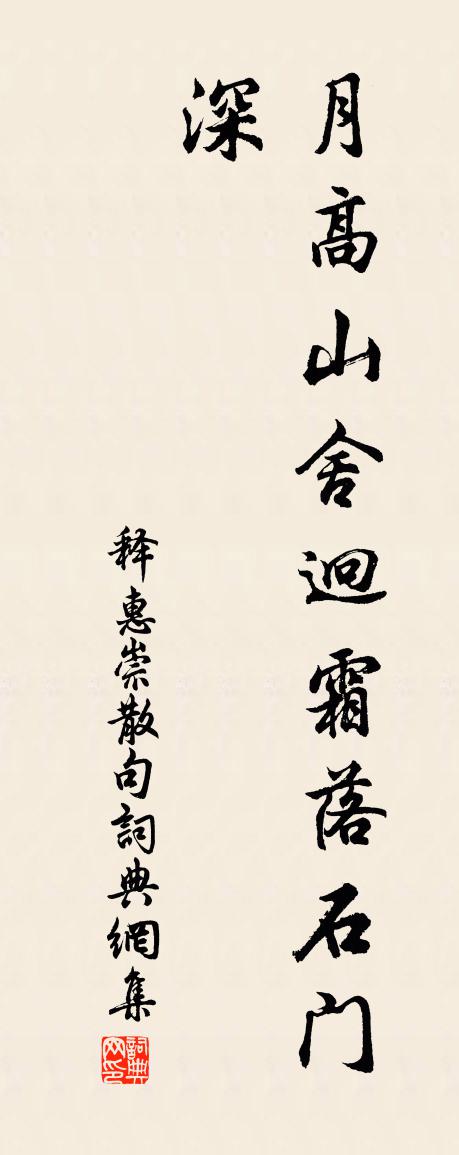 月高山舍迥霜落石门
深
释惠崇散句詞典網集
詞典网印